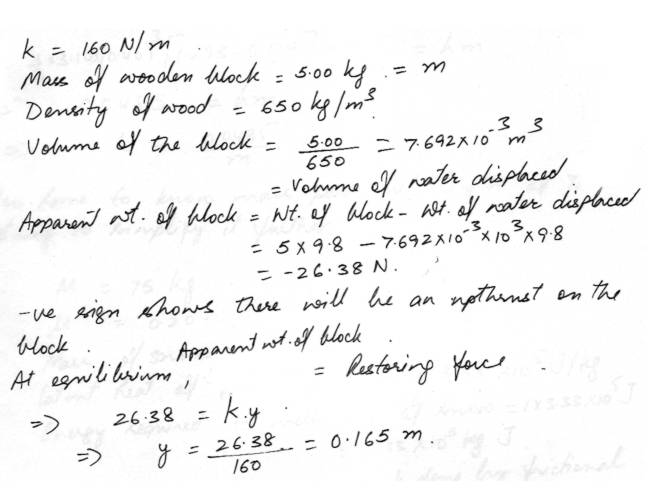 k = 160 N/m
Mass of wooden block = 5.00 kg . = m
Density of wood = 650 kg/m³
Volume of the block = 5.00/650 = 7.692×10⁻³ m³
= Volume of water displaced
Apparent wt. of block = Wt. of block - Wt. of water displaced
= 5 × 9.8 - 7.692×10⁻³×10³×9.8
= -26.38 N.
-ve sign shows there will be an upthrust on the
block .
At equilibrium, Apparent wt. of block = Restoring force .
=> 26.38 = k.y
=> y = 26.38/160 = 0.165 m.